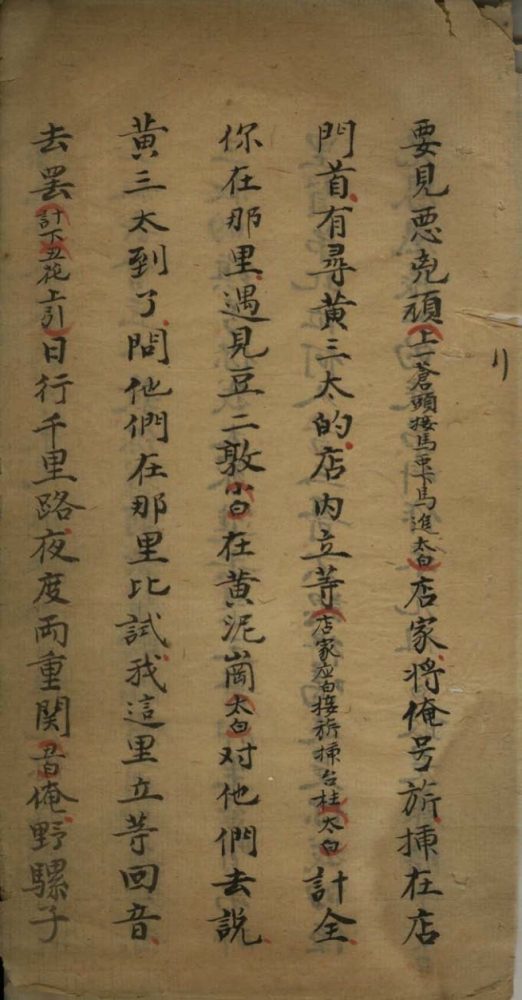 要見惡兇頑上一蒼頭接馬更下馬進太白店家將俺号旂揷在店
門首有尋黃三太的店内立等店家应白接旂揷台柱太白計全
你在那里遇見豆二敦小白在黃泥崗太白对他們去說
黃三太到了問他們在那里比試我這里立等回音
去罢計下丑花上引日行千里路夜度両重関丑白俺野騾子